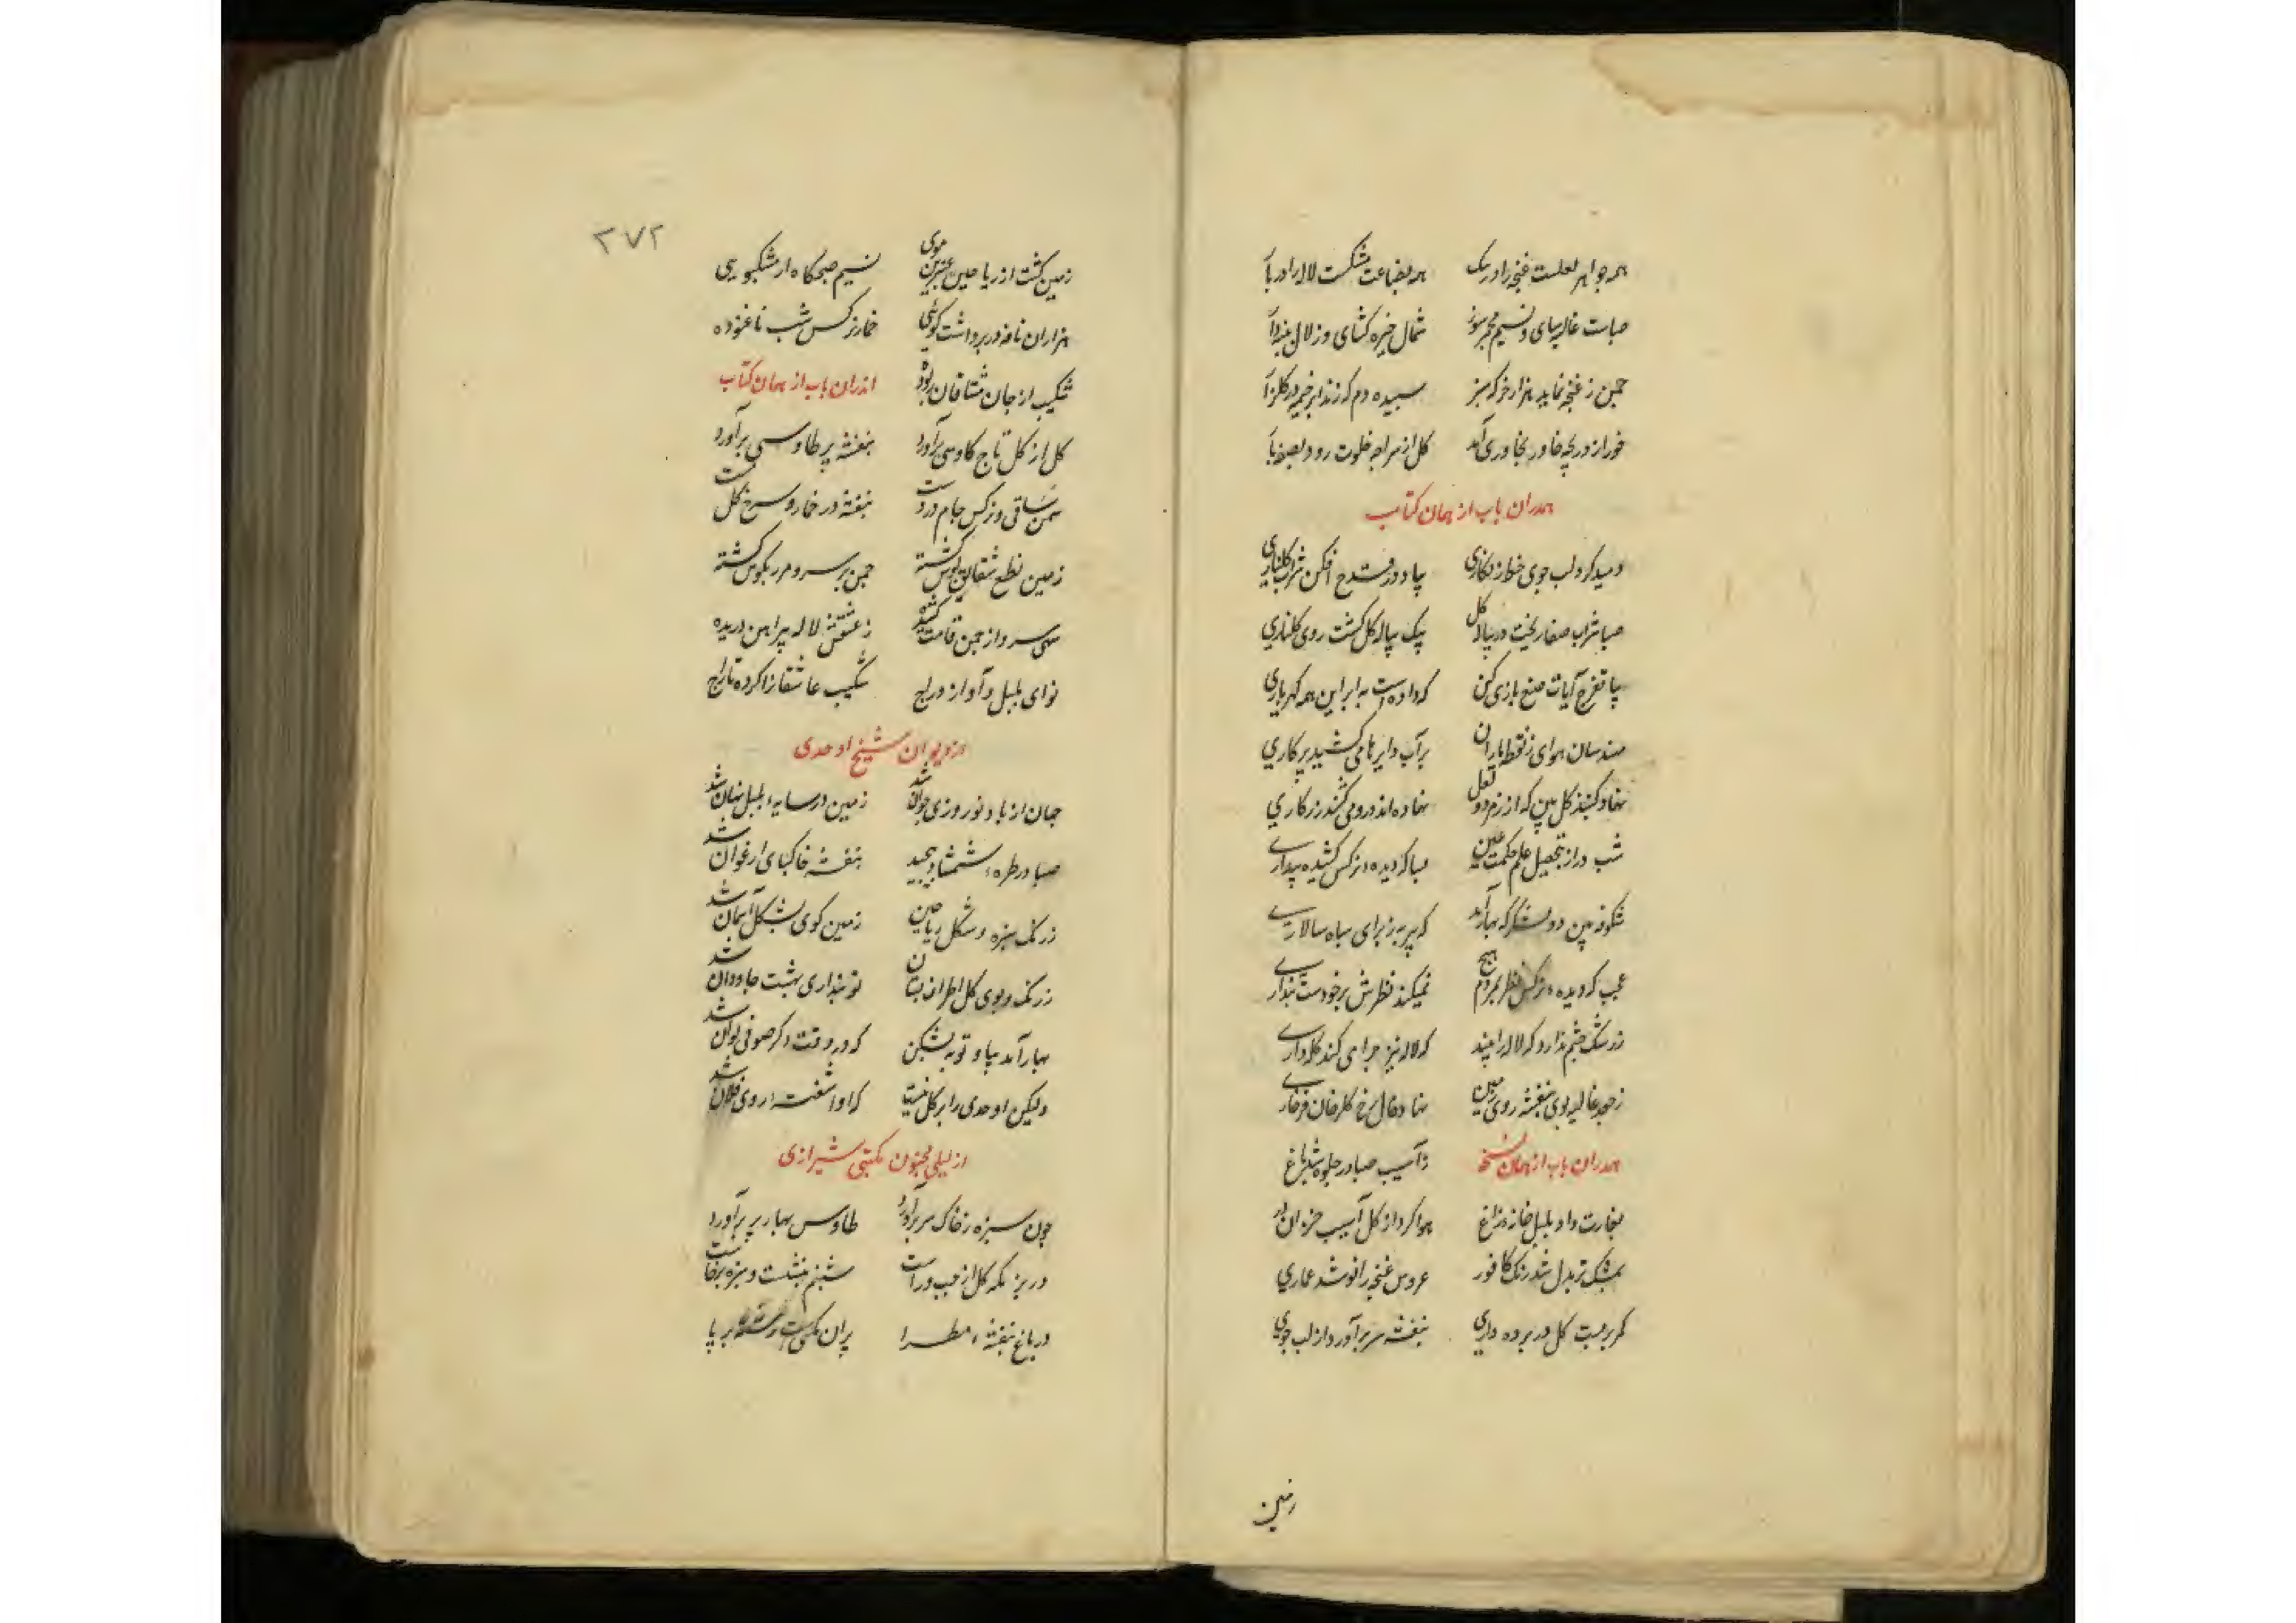 همه جواهر لعلست غنچه را در تنک همه بضاعت مشکست لاله را در بار
صباست غالیه سای و نسیم مجمر سوز شمال خیره کشای و زلال
چمن ز غنچه نماید هزار خرکه سبز سپیده دم که زند ابر خیمه در کلزار
خور از دریچه خاور بخاوری آمد کل از سراچه خلوت رود بصفه بار
همدران باب از همان کتاب
دمید کرد لب جوی خط زنکاری بیا و در قدح افکن شراب کلناری
صبا شراب صفا ریخت در پیاله کل بیک پیاله کل کشت روی کلناری
بیا تفرج آیات صنع باری کن که داده است به ابر این همه کهرباری
مهندسان هوای ز نقطه باران برآب دایرها می کشید پرکاری
نهاد کنبذ کل بین که از زمرد و لعل نهاده اند درو می کنند زرکاری
شب دراز بتحصیل علم حکمت عین صبا که دیده نرکس کشیده بیداری
شکوفه بین دو لشکر که بهار آمد که پیر به ز برای سپاه سالاری
عجب که دیده نرکس نظر بمردم هیچ نمیکند نظرش برخودست پنداری
ز رشک چشم ندارد که لاله را بیند که لاله نیز چرا می کند کله داری
ز جعد غالیه بوی بنفشه روی زمین نهاد خال رخ کلرخان فرخاری
همدران باب از همان نسخه ز آسیب صبا در جلوه شد باغ
بغارت داد بلبل خانه زاغ هوا کرد از کل آسیب خزان دور
بمشک تر بدل شد رنک کافور عروس غنچه را نو شد عماری
کمر بربست کل در پرده داری بنفشه سر برآورد از لب جوی
زمین
۲۷۲
زمین کشت از ریاحین عنبرین موی نسیم صبحکاه از مشکبویی
هزاران نافه در بر داشت کوئی خمار نرکس شب ناغنوده
شکیب از جان مشتاقان ربوده اندران باب از همان کتاب
کل از کل تاج کاوسی برآورد بنفشه پر طاوسی برآورد
سمن ساقی و نرکس جام در دست بنفشه در خمار و سرخ کل مست
زمین نطع شقایق پوش کشته چمن بر سرو مرزنکوش کشته
سهی سرو از چمن قامت کشیده ز عشقش لاله پیراهن دریده
نوای بلبل و آواز دراج شکیب عاشقانرا کرده تاراج
از دیوان شیخ اوحدی
جهان از باد نوروزی جوان شد زمین در سایه سنبل نهان شد
صبا در طره شمشاد پیچید بنفشه خاکپای ارغوان شد
ز رنک سبزه و شکل ریاحین زمین کوی بشکل آسمان شد
ز رنک و بوی کل اطراف بستان تو پنداری بهشت جاودان شد
بهار آمد بیا و توبه بشکن که در وقت دکر صوفی توان شد
ولیکن اوحدی را برک کل نیست که او آشفته روی فلان شد
از لیلی مجنون مکتبی شیرازی
چون سبزه ز خاک سر برآورد طاوس بهار پر برآورد
در بزمکه کل از چپ و راست شبنم بنشست و سبزه برخاست
در باغ بنفشه مطرا